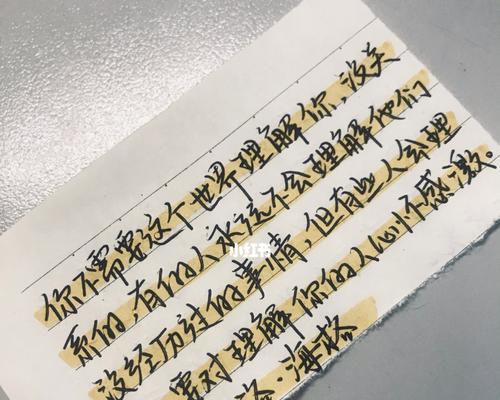 你不需要这个世界理解你，没关
系的，有的人永远不会理解他们
没经历过的事情，但有些人会理
需对理解你的人心怀感激。
·海格
小红书